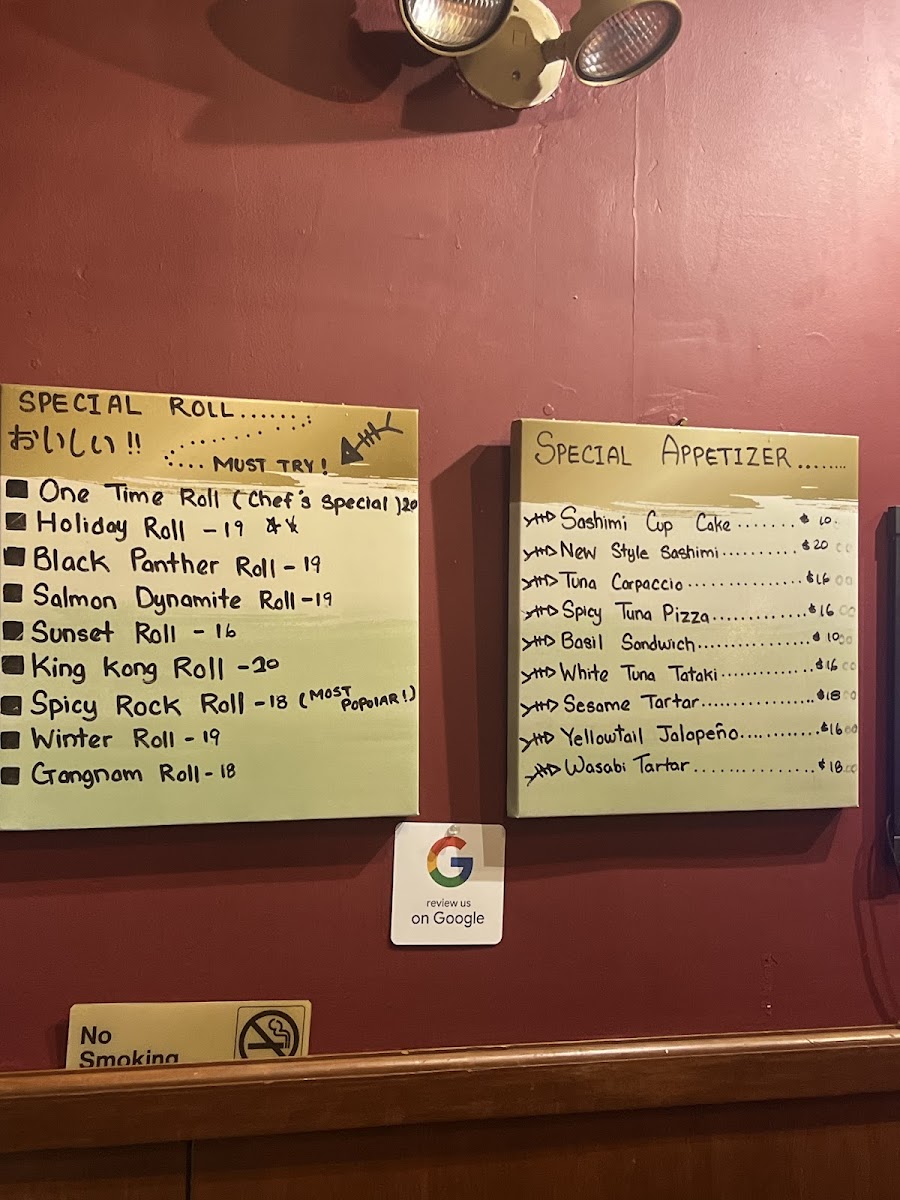 SPECIAL ROLL........
おいしい!!
..... MUST TRY!
One Time Roll (Chef's Special) 20
Holiday Roll - 19
Black Panther Roll - 19
Salmon Dynamite Roll - 19
Sunset Roll - 16
King Kong Roll - 20
Spicy Rock Roll - 18 (MOST POPOlAR!)
Winter Roll - 19
Gangnam Roll - 18
SPECIAL APPETIZER........
Sashimi Cup Cake ....... $ 10.
New Style Sashimi.......... $20 00
Tuna Carpaccio............... $16 00
Spicy Tuna Pizza............ $16 00
Basil Sandwich.............. $ 10 00
White Tuna Tataki........... $16 00
Sesame Tartar............... $18 00
Yellowtail Jalapeño.......... $16 00
Wasabi Tartar................ $18 00
review us
on Google
No
Smoking